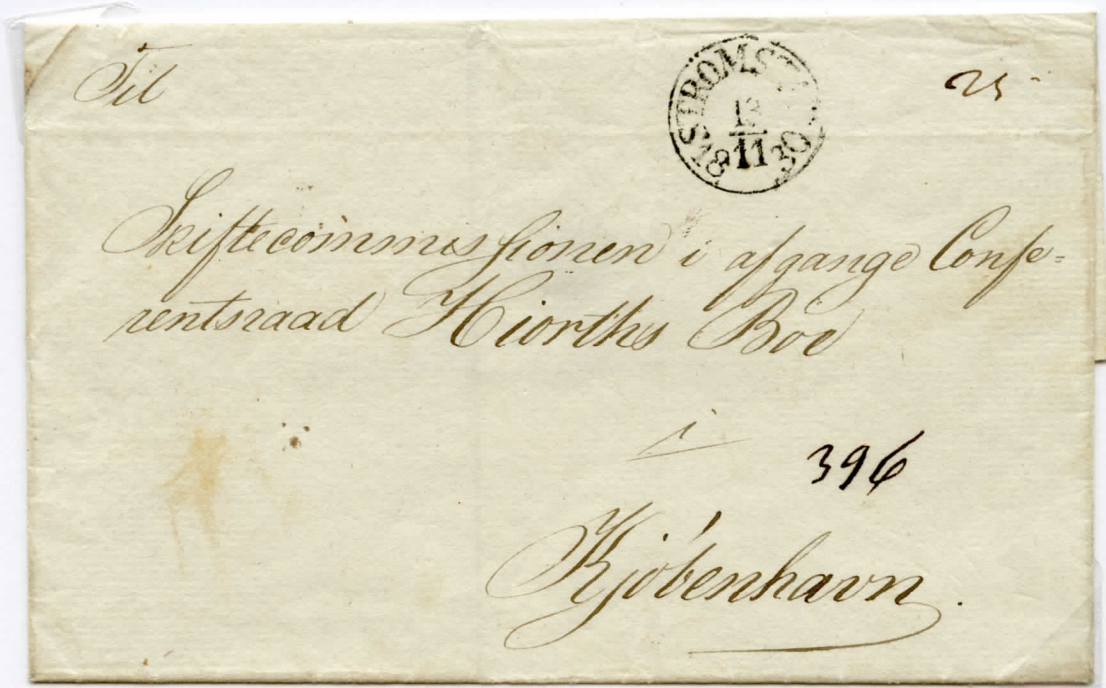 Til
STRÖMSTAD
12
11
1830
25
Skiftecommissionen i afgange Confe=
rentsraad Hiorths Boe
i
396
Kjöbenhavn.